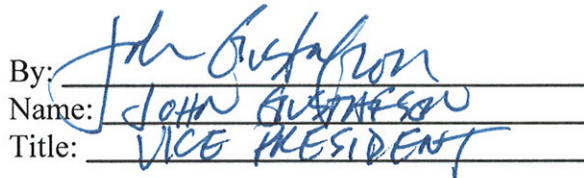 By: John Gustafson
Name: JOHN GUSTAFSON
Title: VICE PRESIDENT